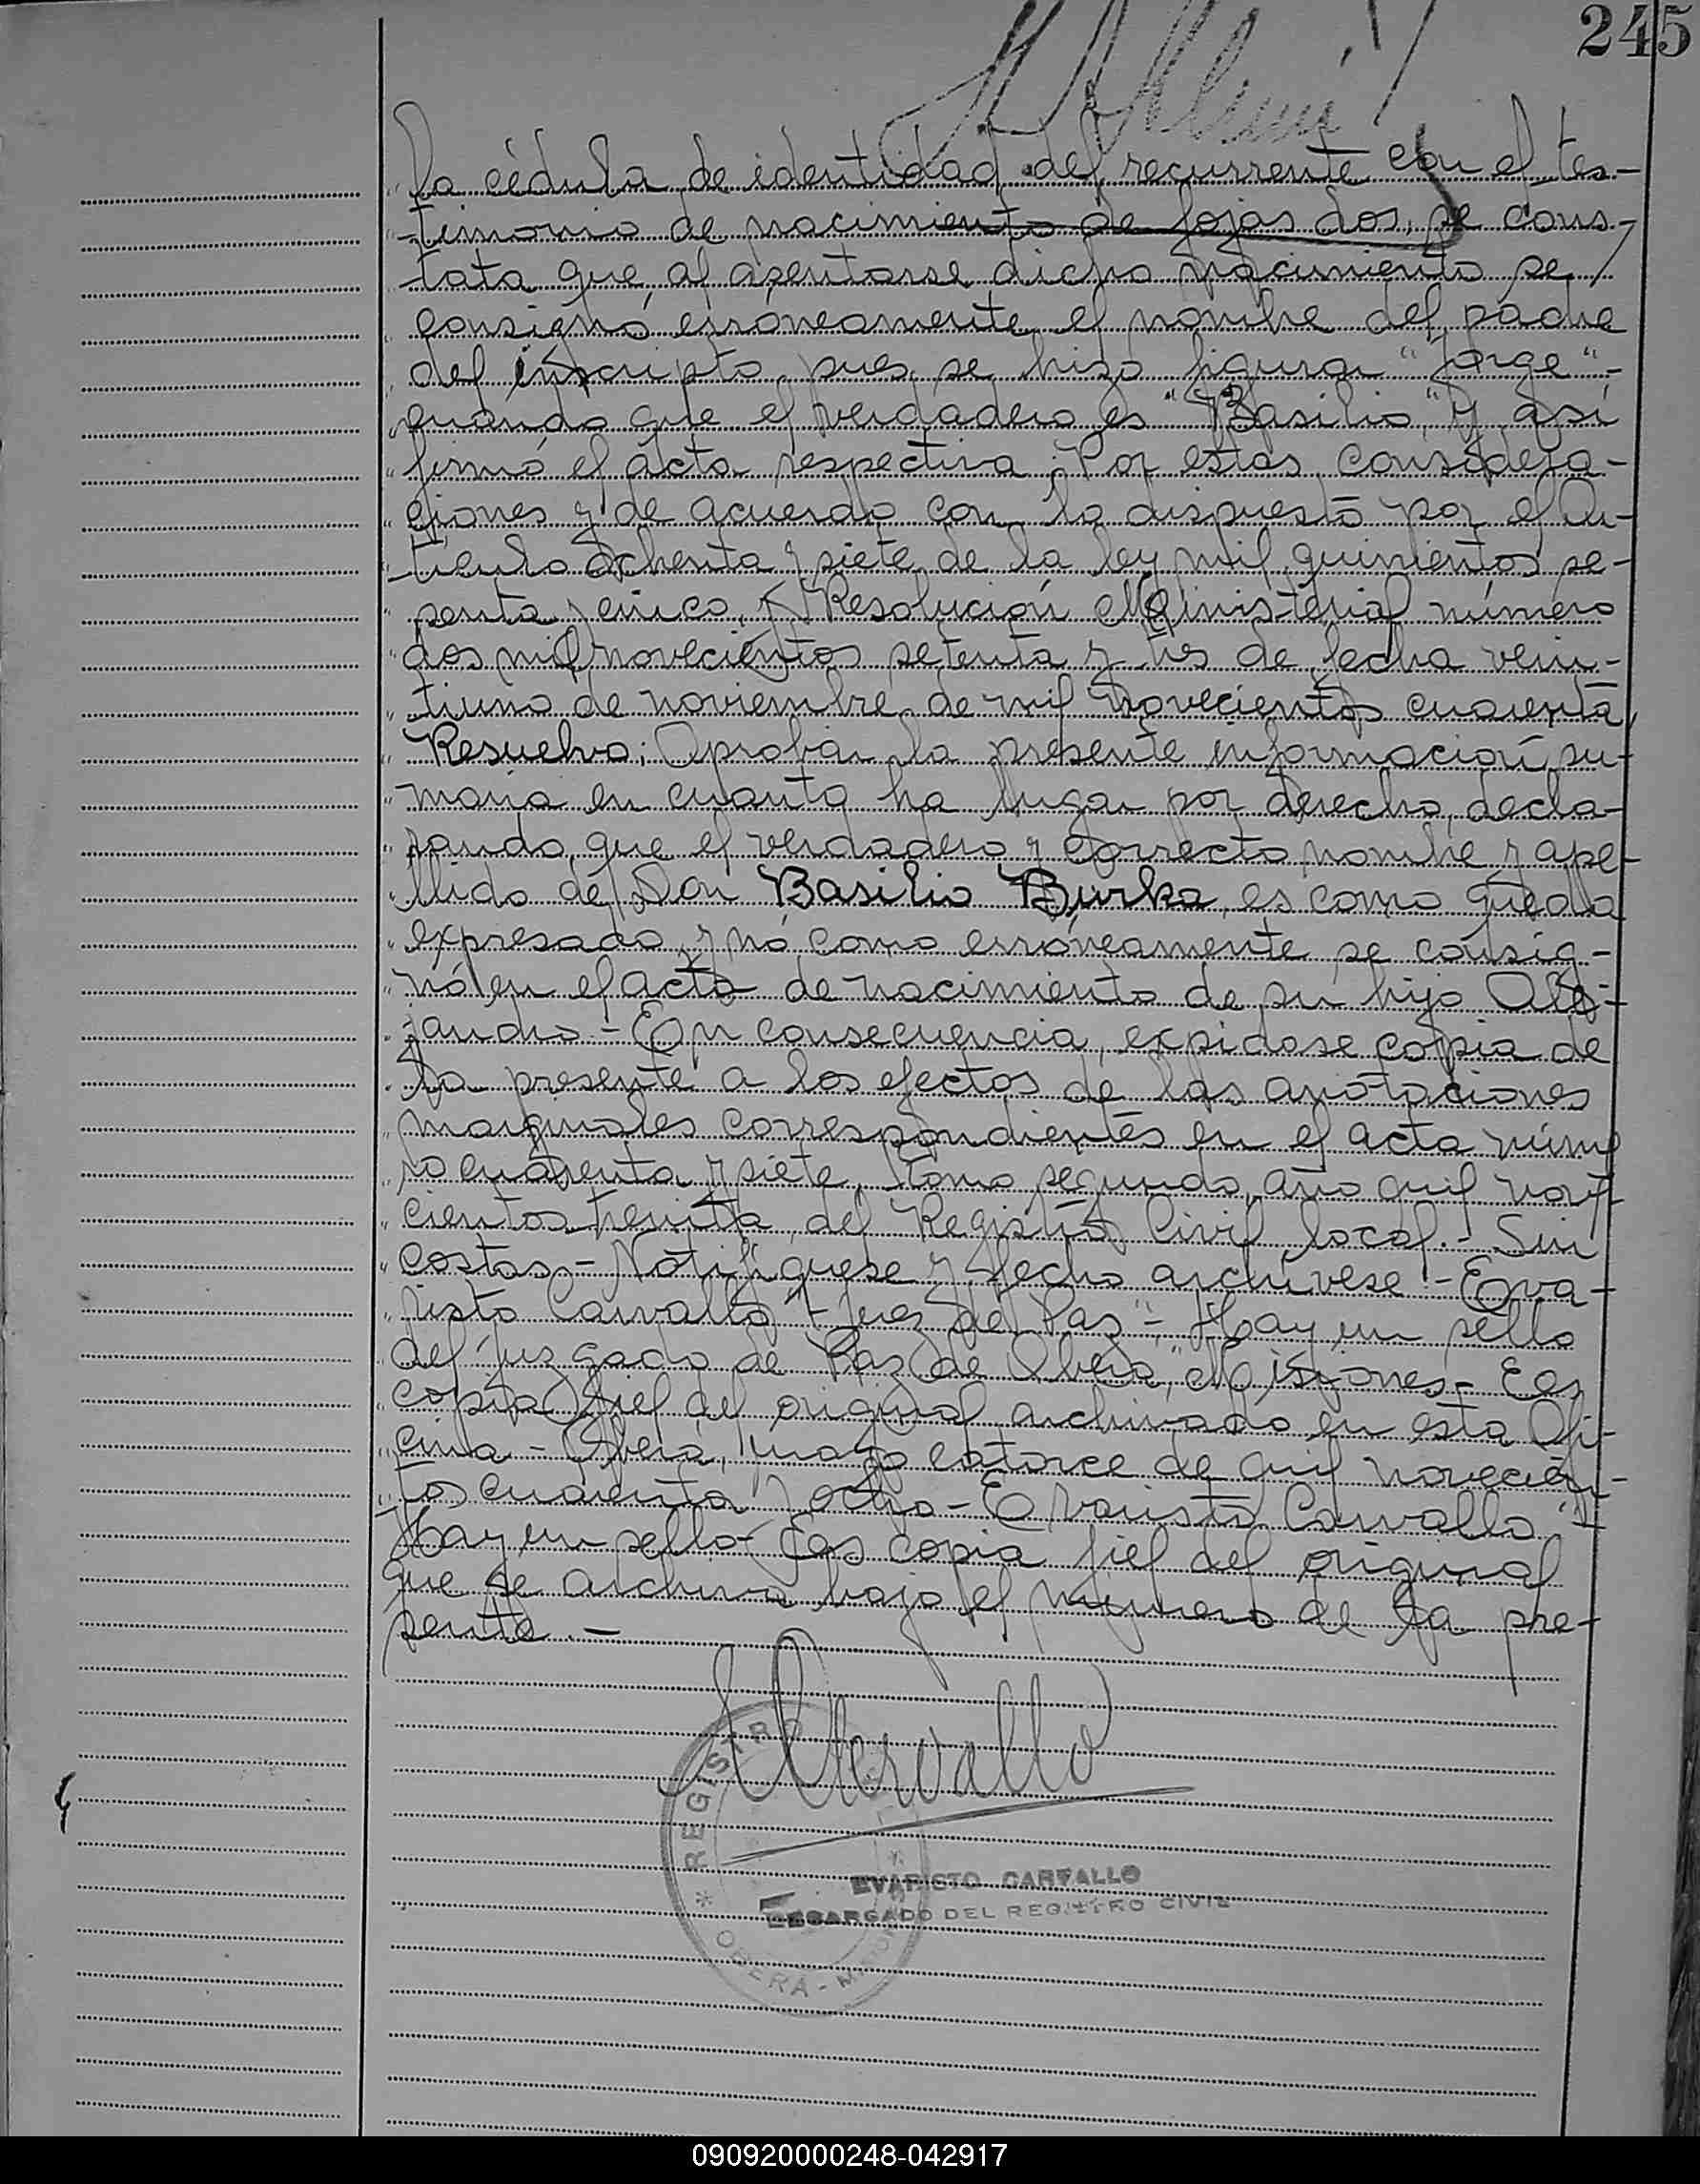 245
la cédula de identidad del recurrente con el tes-
timonio de nacimiento de fojas dos, se cons-
tata que, al asentarse dicho nacimiento se
consignó erróneamente el nombre del padre
del inscripto, pues, se hizo figurar "Jorge"-
cuando que el verdadero es "Basilio", y así
firmó el acta respectiva. Por estas considera-
ciones y de acuerdo con lo dispuesto por el Ar-
tículo ochenta y siete de la ley mil quinientos se-
senta y cinco, y Resolución Ministerial número
dos mil novecientos setenta y tres de fecha vein-
tiuno de noviembre de mil novecientos cuarenta,
Resuelvo; Aprobar la presente información su-
maria en cuanto ha lugar por derecho, decla-
rando que el verdadero y correcto nombre y ape-
llido de Don Basilio Burka, es como queda
expresado, y nó como erróneamente se consig-
nó en el acta de nacimiento de su hijo Ale-
jandro.- En consecuencia, expidase copia de
la presente a los efectos de las anotaciones
marginales correspondientes en el acta núme
ro cuarenta y siete, tomo segundo, año mil nove
cientos treinta, del Registro Civil local.- Sin
costas.- Notifíquese y fecho archívese.- Eva-
risto Carvallo "- Juez de Paz"- Hay un sello
del juzgado de Paz de Oberá, Misiones.- Es
copia fiel del original archivado en esta Ofi-
cina.- Oberá, mayo catorce de mil novecien-
tos cuarenta y ocho.- Evaristo Carvallo.-
Hay un sello.- Es copia fiel del original
que se archiva bajo el número de la pre-
sente.-
E Carvallo
REGISTRO
EVARISTO CARVALLO
ENCARGADO DEL REGISTRO CIVIL
OBERA - MISIONES
090920000248-042917